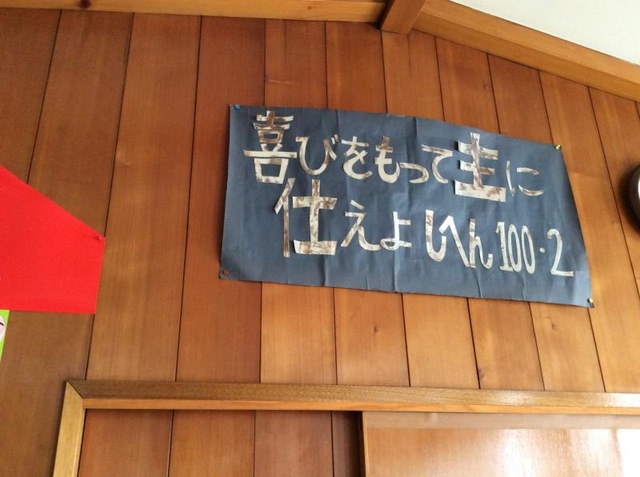 喜びをもって主に
仕えよ しへん100・2